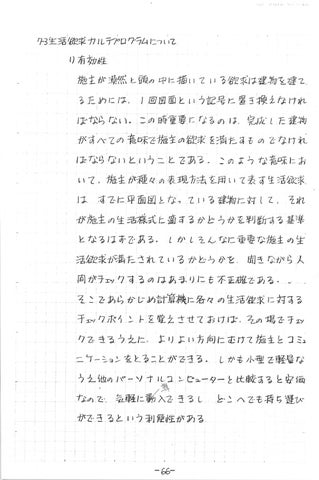 7-3 生活欲求カルテプログラムについて
1) 有効性
施主が漠然と頭の中に描いている欲求は建物を建て
るためには、1回図面という記号に置き換えなけれ
ばならない。この時重要になるのは、完成した建物
がすべての意味で施主の欲求を満たすものでなけれ
ばならないということである。このような意味にお
いて、施主が種々の表現方法を用いて表す生活欲求
は、すでに平面図となっている建物に対して、それ
が施主の生活様式に適するかどうかを判断する基準
となるはずである。しかしそんなに重要な施主の生
活欲求が満たされているかどうかを、聞きながら人
間がチェックするのはあまりにも不正確である。
そこであらかじめ計算機に各々の生活欲求に対する
チェックポイントを覚えさせておけば、その場でチェッ
クできるうえに、よりよい方向にむけて施主とコミュ
ニケーションをとることができる。しかも小型で軽量な
うえ他のパーソナルコンピューターと比較すると安価
なので、気軽に導入できるし、どこへでも持ち運び
ができるという利便性がある
-66-